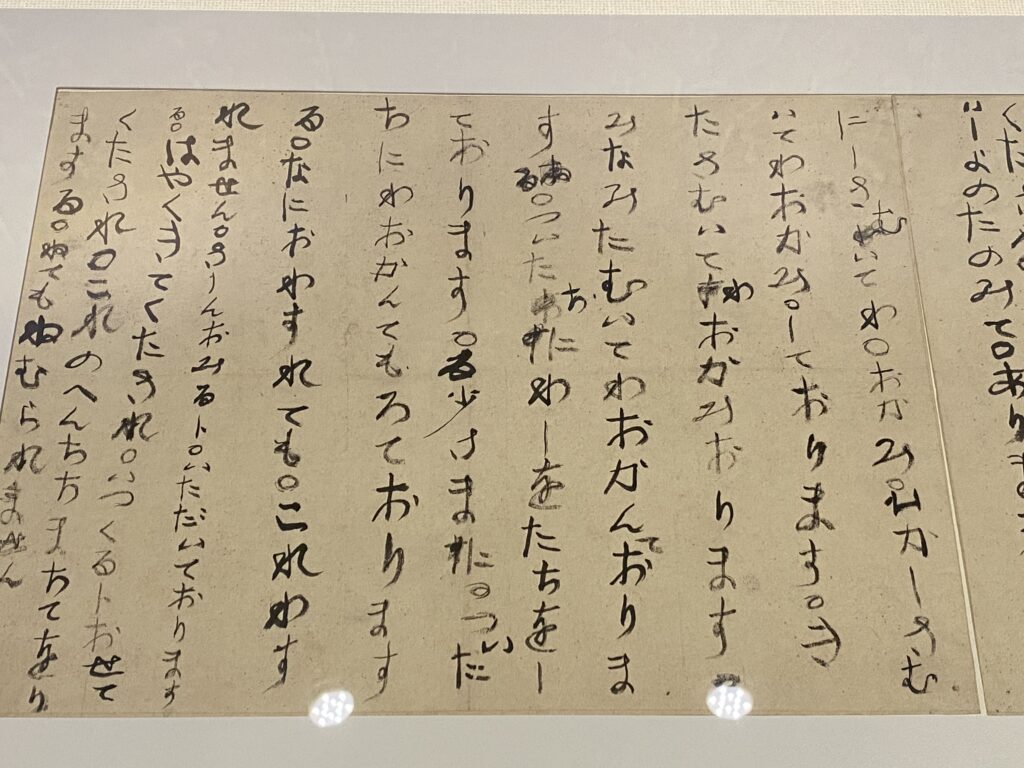 いしよのたのみて。ありま
にしさむいてわ。おかみ。ひかしさむ
いてわおかみ。しております。き
たさむいてわおかみおります
みなみたむいてわおかんておりま
する。ついたちにわしをたちをし
ております。る少さまに。ついた
ちにわおかんてもろております
る。なにおわすれても。これわす
れません。さしんおみるト。いただいております
る。はやくきてくたされ。いつくるトおせて
くたされ。これのへんちちまちてをり
まする。ねてもねむられません